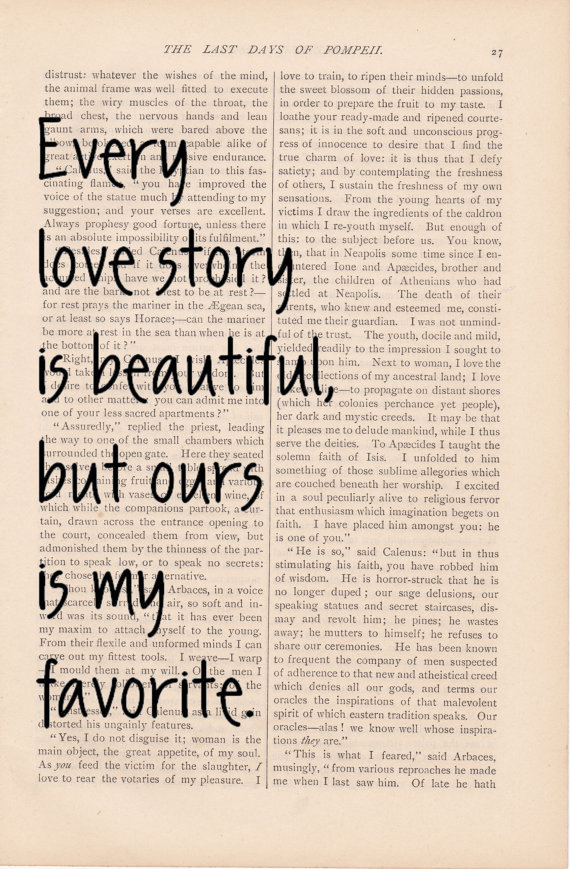 THE LAST DAYS OF POMPEII. 27
Every
love story
is beautiful,
but ours
is my
favorite.
distrust: whatever the wishes of the mind,
the animal frame was well fitted to execute
them; the wiry muscles of the throat, the
broad chest, the nervous hands and lean
gaunt arms, which were bared above the
capable alike of
great endurance.
said the to this fas-
cinating "you improved the
voice of the statue much by attending to my
suggestion; and your verses are excellent.
Always prophesy good fortune, unless there
is an absolute impossibility of its fulfilment."
it?
and are the not best to be at rest?—
for rest prays the mariner in the Ægean sea,
or at least so says Horace;—can the mariner
be more at rest in the sea than when he is at
the bottom of it?"
"Right,
to other matters you can admit me into
one of your less sacred apartments?"
"Assuredly," replied the priest, leading
the way to one of the small chambers which
surrounded the open gate. Here they seated
a
fruit
with wine,
which while the companions partook, a cur-
tain, drawn across the entrance opening to
the court, concealed them from view, but
admonished them by the thinness of the par-
tition to speak low, or to speak no secrets:
chose alternative.
Arbaces, in a voice
air, so soft and in-
ward was its sound, "that it has ever been
my maxim to attach myself to the young.
From their flexile and unformed minds I can
carve out my fittest tools. I weave—I warp
—I mould them at my will. Of the men I
the
Calenus,
distorted his ungainly features.
"Yes, I do not disguise it; woman is the
main object, the great appetite, of my soul.
As you feed the victim for the slaughter, I
love to rear the votaries of my pleasure. I
love to train, to ripen their minds—to unfold
the sweet blossom of their hidden passions,
in order to prepare the fruit to my taste. I
loathe your ready-made and ripened courte-
sans; it is in the soft and unconscious prog-
ress of innocence to desire that I find the
true charm of love: it is thus that I defy
satiety; and by contemplating the freshness
of others, I sustain the freshness of my own
sensations. From the young hearts of my
victims I draw the ingredients of the caldron
in which I re-youth myself. But enough of
this: to the subject before us. You know,
then, that in Neapolis some time since I en-
countered Ione and Apæcides, brother and
sister, the children of Athenians who had
settled at Neapolis. The death of their
parents, who knew and esteemed me, consti-
tuted me their guardian. I was not unmind-
ful of the trust. The youth, docile and mild,
yielded readily to the impression I sought to
upon him. Next to woman, I love the
old recollections of my ancestral land; I love
to propagate on distant shores
(which her colonies perchance yet people),
her dark and mystic creeds. It may be that
it pleases me to delude mankind, while I thus
serve the deities. To Apæcides I taught the
solemn faith of Isis. I unfolded to him
something of those sublime allegories which
are couched beneath her worship. I excited
in a soul peculiarly alive to religious fervor
that enthusiasm which imagination begets on
faith. I have placed him amongst you: he
is one of you."
"He is so," said Calenus: "but in thus
stimulating his faith, you have robbed him
of wisdom. He is horror-struck that he is
no longer duped; our sage delusions, our
speaking statues and secret staircases, dis-
may and revolt him; he pines; he wastes
away; he mutters to himself; he refuses to
share our ceremonies. He has been known
to frequent the company of men suspected
of adherence to that new and atheistical creed
which denies all our gods, and terms our
oracles the inspirations of that malevolent
spirit of which eastern tradition speaks. Our
oracles—alas! we know well whose inspira-
tions they are."
"This is what I feared," said Arbaces,
musingly, "from various reproaches he made
me when I last saw him. Of late he hath